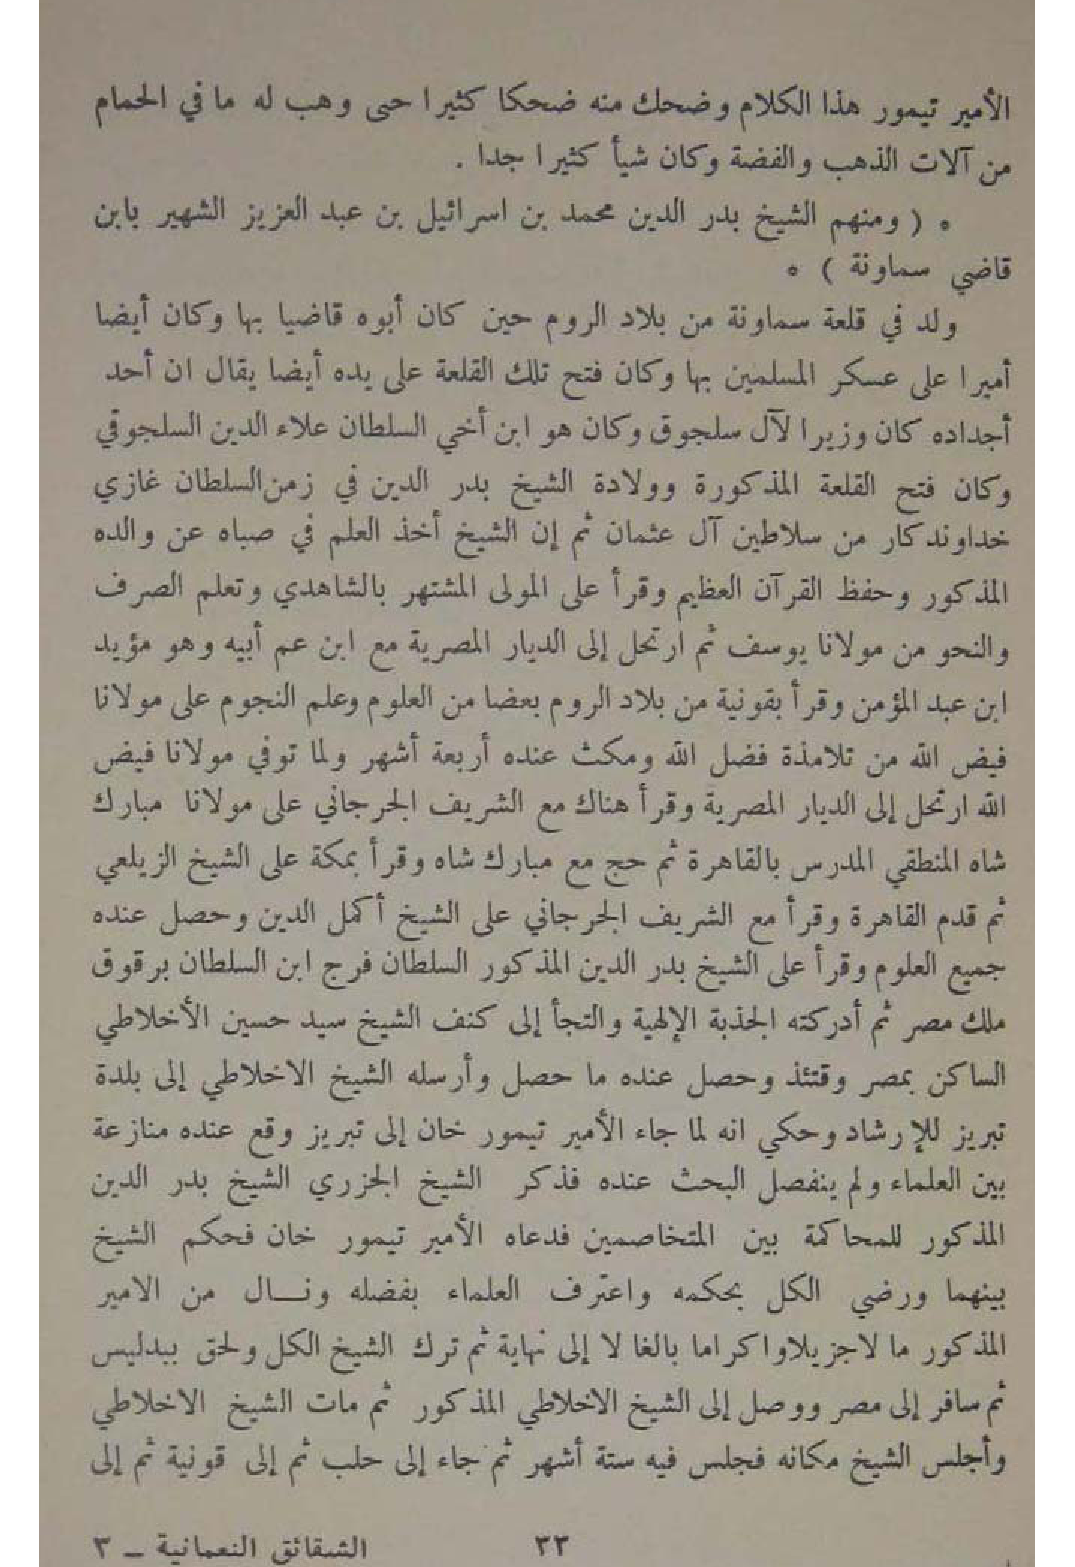 الأمير تيمور هذا الكلام وضحك منه ضحكا كثيرا حتى وهب له ما في الحمام
من آلات الذهب والفضة وكان شيأ كثيرا جدا .
* ( ومنهم الشيخ بدر الدين محمد بن اسرائيل بن عبد العزيز الشهير بابن
قاضي سماونة ) *
ولد في قلعة سماونة من بلاد الروم حين كان أبوه قاضيا بها وكان أيضا
أميرا على عسكر المسلمين بها وكان فتح تلك القلعة على يده أيضا يقال ان أحد
أجداده كان وزيرا لآل سلجوق وكان هو ابن أخي السلطان علاء الدين السلجوقي
وكان فتح القلعة المذكورة وولادة الشيخ بدر الدين في زمن السلطان غازي
خداوندكار من سلاطين آل عثمان ثم إن الشيخ أخذ العلم في صباه عن والده
المذكور وحفظ القرآن العظيم وقرأ على المولى المشتهر بالشاهدي وتعلم الصرف
والنحو من مولانا يوسف ثم ارتحل إلى الديار المصرية مع ابن عم أبيه وهو مؤيد
ابن عبد المؤمن وقرأ بقونية من بلاد الروم بعضا من العلوم وعلم النجوم على مولانا
فيض الله من تلامذة فضل الله ومكث عنده أربعة أشهر ولما توفي مولانا فيض
الله ارتحل إلى الديار المصرية وقرأ هناك مع الشريف الجرجاني على مولانا مبارك
شاه المنطقي المدرس بالقاهرة ثم حج مع مبارك شاه وقرأ بمكة على الشيخ الزيلعي
ثم قدم القاهرة وقرأ مع الشريف الجرجاني على الشيخ أكمل الدين وحصل عنده
جميع العلوم وقرأ على الشيخ بدر الدين المذكور السلطان فرج ابن السلطان برقوق
ملك مصر ثم أدركته الجذبة الإلهية والتجأ إلى كنف الشيخ سيد حسين الأخلاطي
الساكن بمصر وقتئذ وحصل عنده ما حصل وأرسله الشيخ الاخلاطي إلى بلدة
تبريز للإرشاد وحكي انه لما جاء الأمير تيمور خان إلى تبريز وقع عنده منازعة
بين العلماء ولم ينفصل البحث عنده فذكر الشيخ الجزري الشيخ بدر الدين
المذكور للمحاكمة بين المتخاصمين فدعاه الأمير تيمور خان فحكم الشيخ
بينهما ورضي الكل بحكمه واعترف العلماء بفضله ونــال من الامير
المذكور ما لاجزيلا واكراما بالغا لا إلى نهاية ثم ترك الشيخ الكل ولحق ببدليس
ثم سافر إلى مصر ووصل إلى الشيخ الاخلاطي المذكور ثم مات الشيخ الاخلاطي
وأجلس الشيخ مكانه فجلس فيه ستة أشهر ثم جاء إلى حلب ثم إلى قونية ثم إلى
٣٣
الشقائق النعمانية ـ ٣